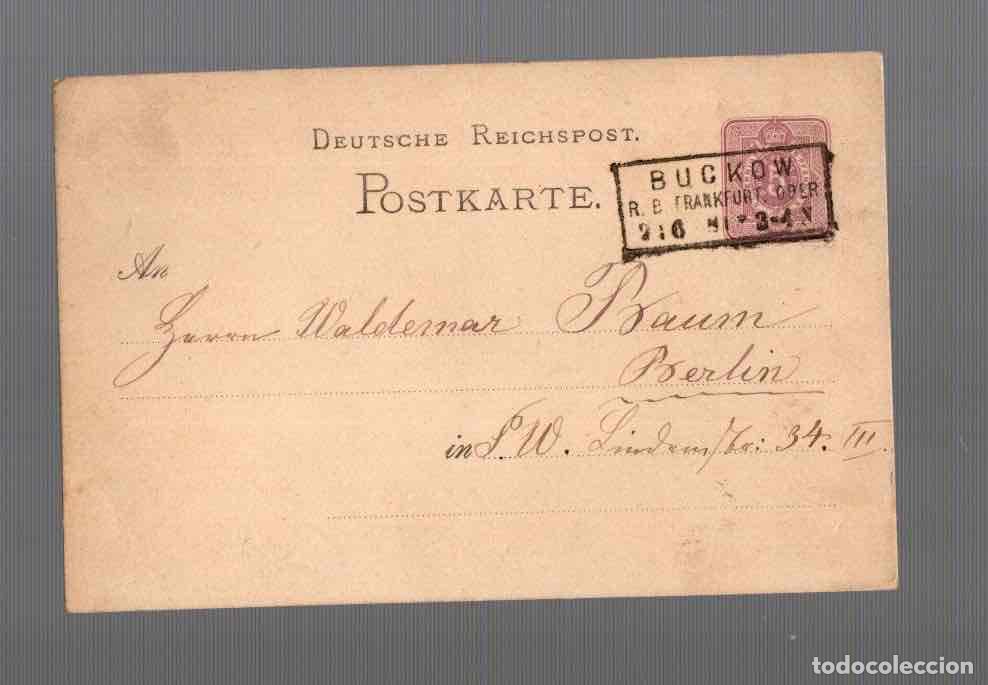 DEUTSCHE REICHSPOST.
POSTKARTE.
BUCKOW
R. B. FRANKFURT ODER
2 6 3-4 N
An
Herrn Waldemar Baum
Berlin
in S. W. Lindenstr: 34. III.
todocoleccion